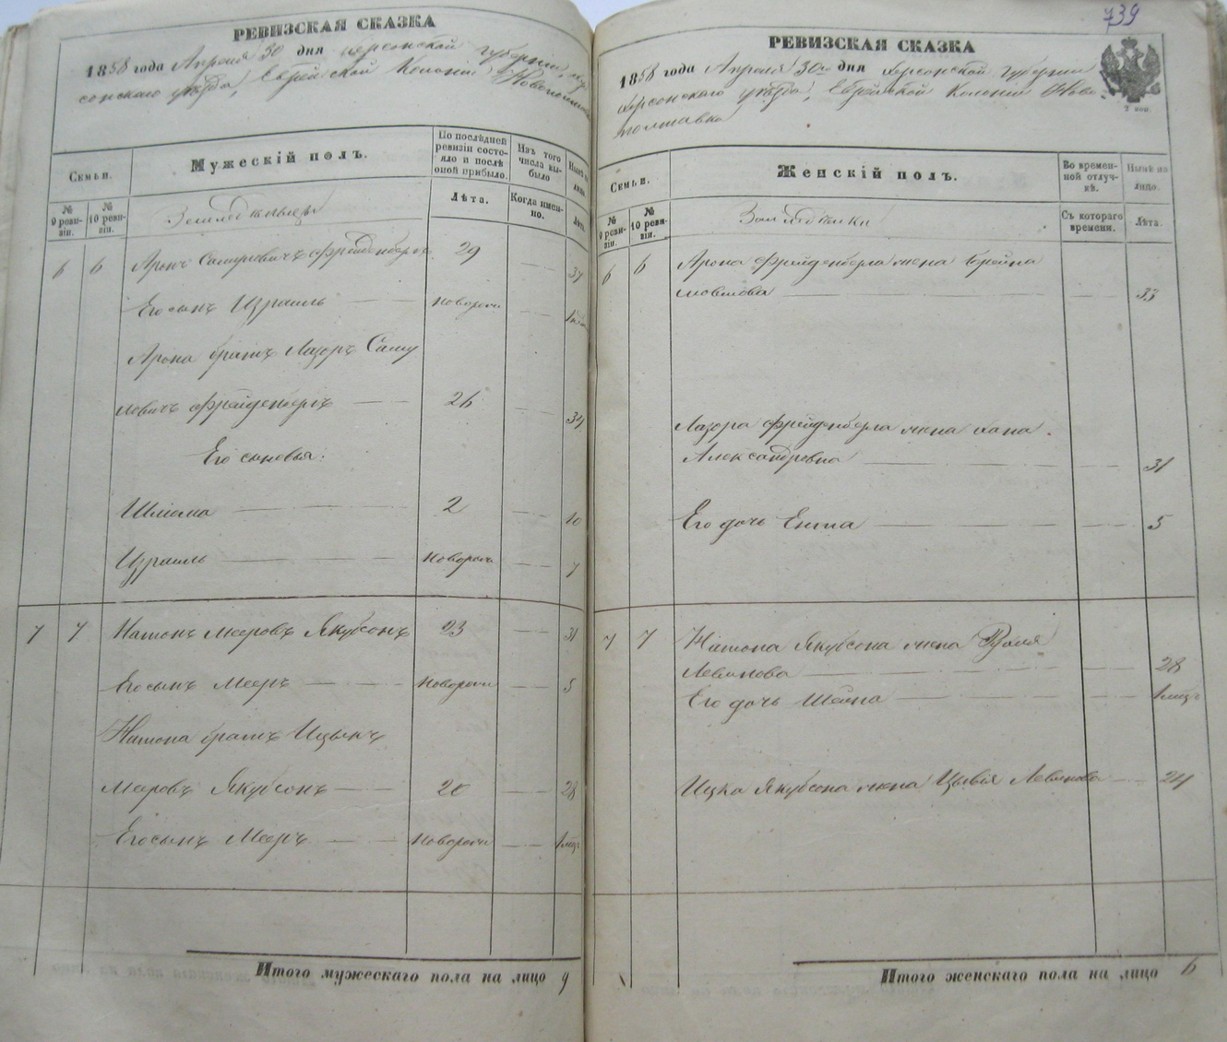 РЕВИЗСКАЯ СКАЗКА
1858 года Апреля 30 дня Херсонской губернии, Хер
сонскаго уѣзда, Еврейской Колоніи Новополтавк
Семьи.
Мужескій полъ.
По послѣдней ревизіи состояло и послѣ оной прибыло.
Изъ того числа выбыло
Нынѣ на лицо
№ 9 ревизіи.
№ 10 ревизіи.
Земледѣльцы
Лѣта.
Когда именно.
Лѣта
6 6 Аронъ Самуиловичъ Фрейденбергъ 29 37
Его сынъ Израиль новорож
Арона братъ Лазоръ Саму
иловичъ Фрейденбергъ 26 34
Его сыновья:
Шлиома 2 10
Израиль новорож 7
7 7 Натонъ Мееровъ Якубсонъ 23 31
Его сынъ Мееръ новорож 5
Натона братъ Ицыкъ
Мееровъ Якубсонъ 20 28
Его сынъ Мееръ новорож 1 мѣс
Итого мужескаго пола на лицо 9
739
РЕВИЗСКАЯ СКАЗКА
1858 года Апреля 30го дня Херсонской губерніи
Херсонскаго уѣзда, Еврейской Колоніи Ново
полтавка
Семьи.
Женскій полъ.
Во временной отлучкѣ.
Нынѣ на лицо.
№ 9 ревизіи.
№ 10 ревизіи.
Земледѣлки
Съ котораго времени.
Лѣта.
6 6 Арона Фрейденберга жена Брейна
Мовшова 33
Лазора Фрейденберга жена Хана
Александровна 31
Его дочь Ента 5
7 7 Натона Якубсона жена Роля
Левинова 28
Его дочь Шейна 1 мѣс
Ицка Якубсона жена Цывья Левинова 24
Итого женскаго пола на лицо 6